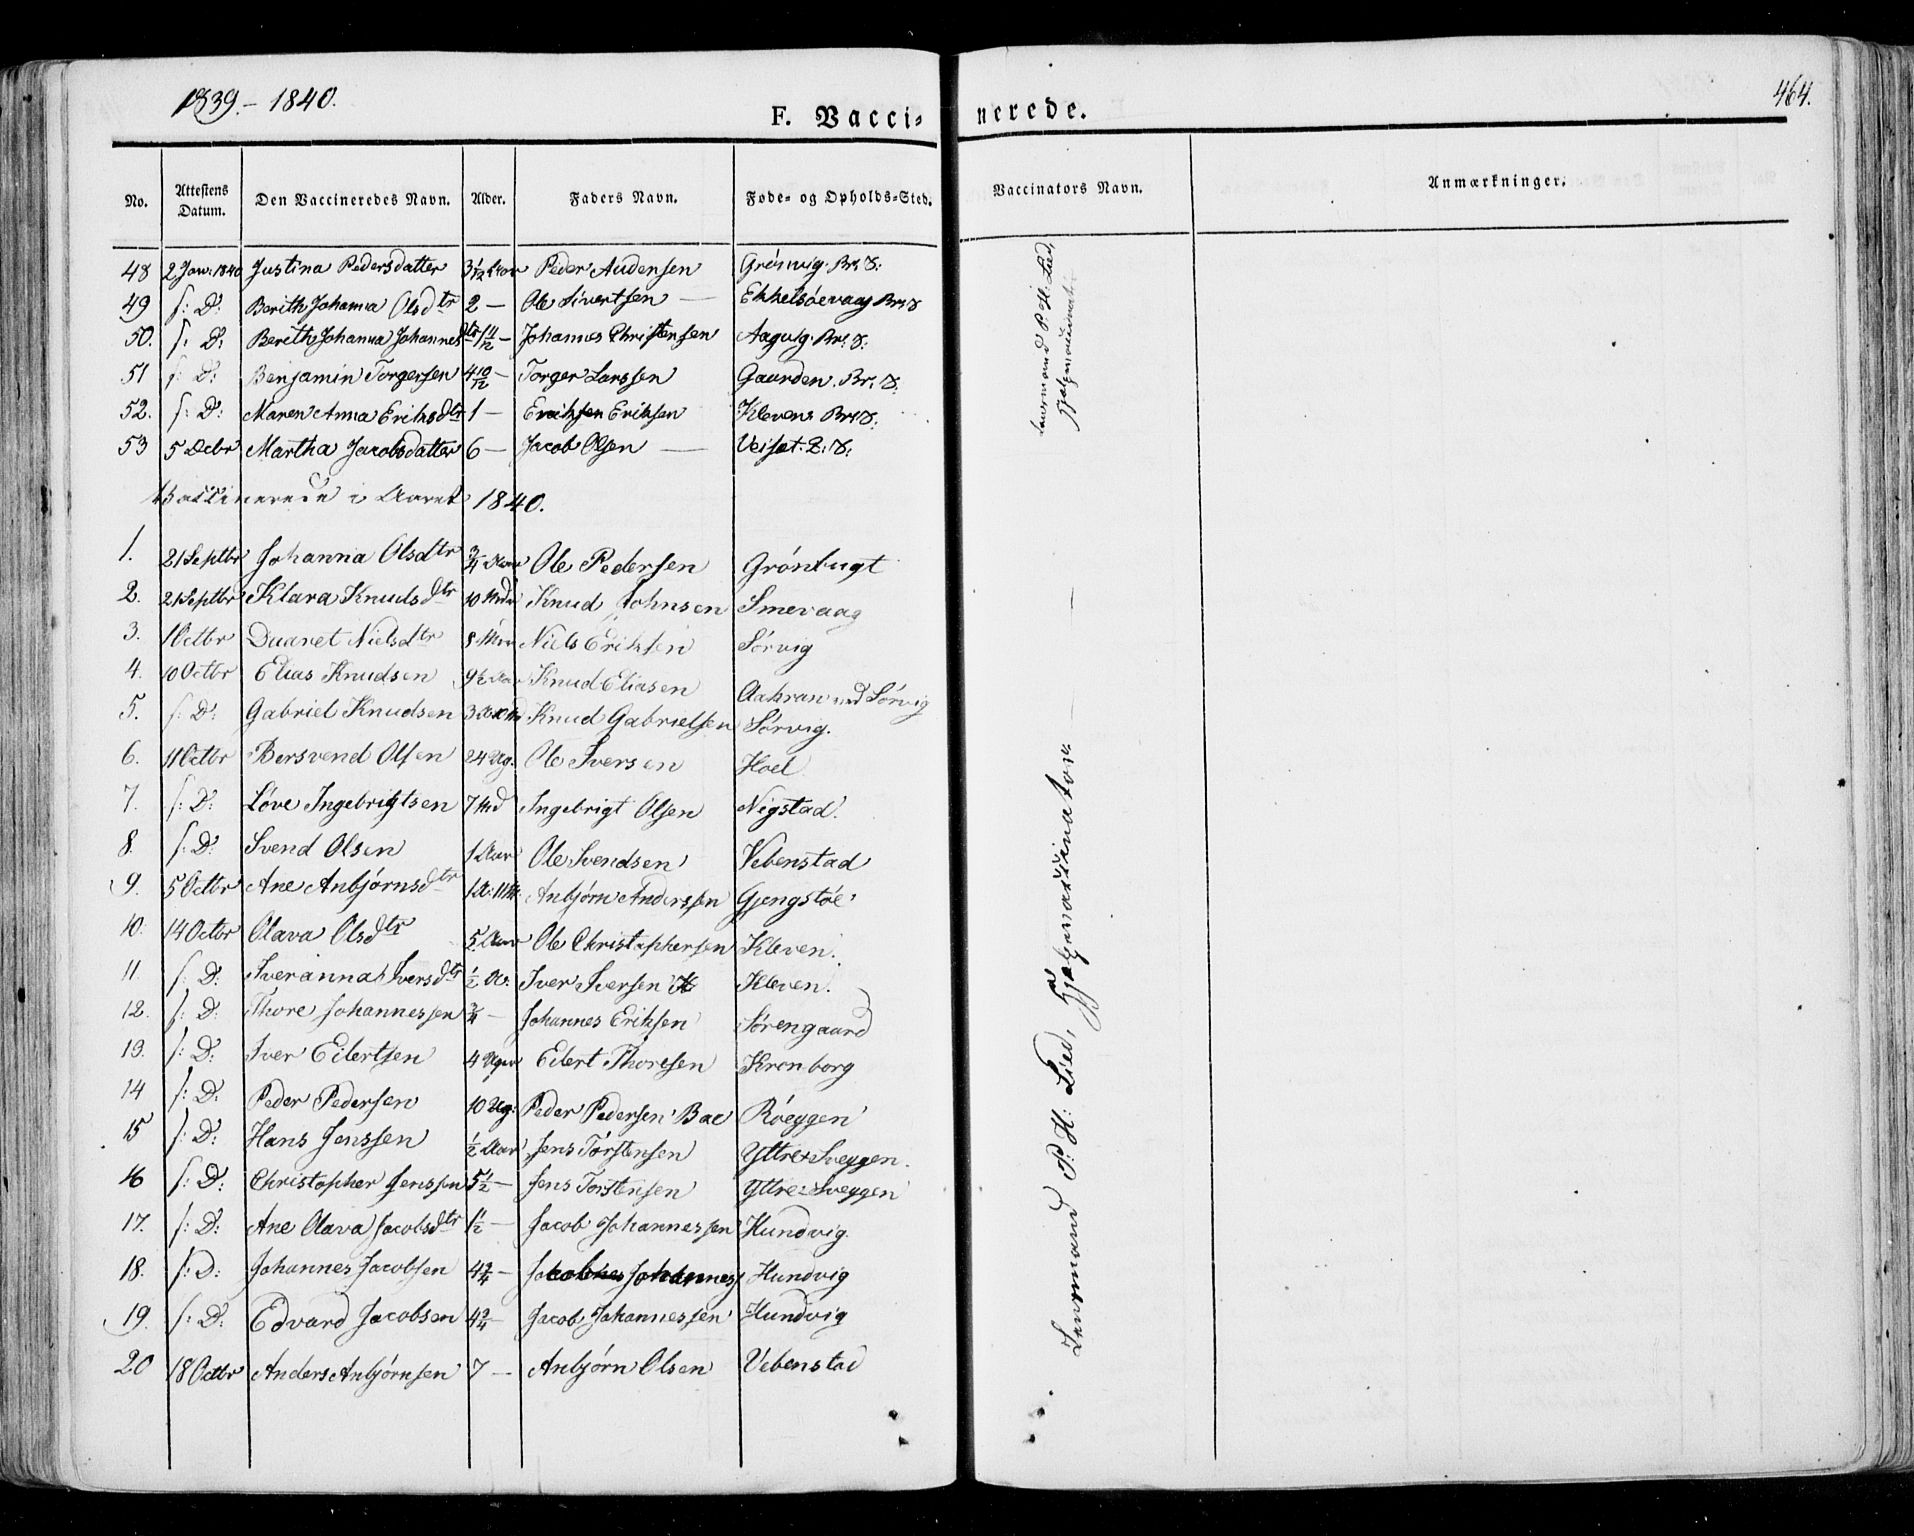 1839 - 1840.
F. Vaccinerede.
464.
No. | Attestens Datum. | Den Vaccineredes Navn. | Alder. | Faders Navn. | Føde- og Opholds-Sted. | Vaccinators Navn. | Anmærkninger.
48 | 2 Jan: 1840 | Justina Pedersdatter | 3 1/12 Aar | Peder Audensen | Grönvig. Br: S:
49 | s: D: | Berith Johanna Olsdtr | 2 — | Ole Sivertsen — | Ekkelsöevaag Br: S
50. | s: D: | Berith Johanna Johannesdtr | 11/12 — | Johannes Christensen | Br: S:
51 | s: D: | Benjamin Torgersen | 4 10/12 — | Torger Larssen | Gaarden. Br: S:
52. | s: D: | Maren Anna Eriksdtr | 1 — | Eriksen Eriksen | Klevens Br: S:
53 | 5 Dcbr | Martha Jacobsdatter | 6 — | Jacob Olsen — | Veiset: S:
Vaccinerede i Aaret 1840.
1. | 21 Septbr | Johanna Olsdtr | 3/4 Aar | Ole Pedersen | Grönbugt
2. | 21 Septbr | Klara Knudsdtr | 10 Mdr | Knud Johnsen | Smevaag
3. | 1 Octbr | Daaret Nielsdtr | 8 | Niels Eriksen | Sörvig
4. | 10 Octbr | Elias Knudsen | 9 1/2 Aar | Knud Eliasen | Aakran ved Sörvig
5. | s: D: | Gabriel Knudsen | 3 | Knud Gabrielsen | Sörvig.
6. | 11 Octbr | Bersvend Olsen | 24 Ug. | Ole Iversen | Hoel
7. | s: D: | Löve Ingebrigtsen | 7 Md | Ingebrigt Olsen | Nigstad.
8. | s: D: | Svend Olsen | 1 Aar | Ole Svendsen | Vebenstad
9. | 5 Octbr | Ane Anbjörnsdtr | 1 A: 11 M: | Anbjörn Anderssen | Gjengstöe
10. | 14 Octbr | Olava Olsdtr | 5 Aar | Ole Christophersen | Kleven.
11. | s: D: | Iveranna Iversdtr | 1/2 A: | Iver Iversen | Kleven.
12. | s: D: | Thore Johannessen | 3/4 — | Johannes Eriksen | Sörengaard
13. | s: D: | Iver Eilertsen | 4 Uger | Eilert Thoresen | Kronborg
14 | s: D: | Peder Pedersen | 10 Ug: | Peder Pedersen Bae | Röeggen
15 | s: D: | Hans Jenssen | 1/2 Aar | Jens Törstensen | Yttre Sveggen.
16 | s: D: | Christopher Jenssen | 5 1/2 — | Jens Torstensen | Yttre Sveggen
17. | s: D: | Ane Olava Jacobsdtr | 1 1/2 — | Jacob Johannessen | Hundvig.
18. | s: D: | Johannes Jacobsen | 4 3/4 — | Johannes | Hundvig
19. | s: D: | Edvard Jacobsen | 4 3/4 — | Jacob Johannessen | Hundvig
20 | 18 Octbr | Anders Anbjörnsen | 7 — | Anbjörn Olsen | Vebenstad
Lensmand P. H. Lied,
Hjelpevaccinat:
Lensmand P: H: Lied, Hjelpevaccinateur